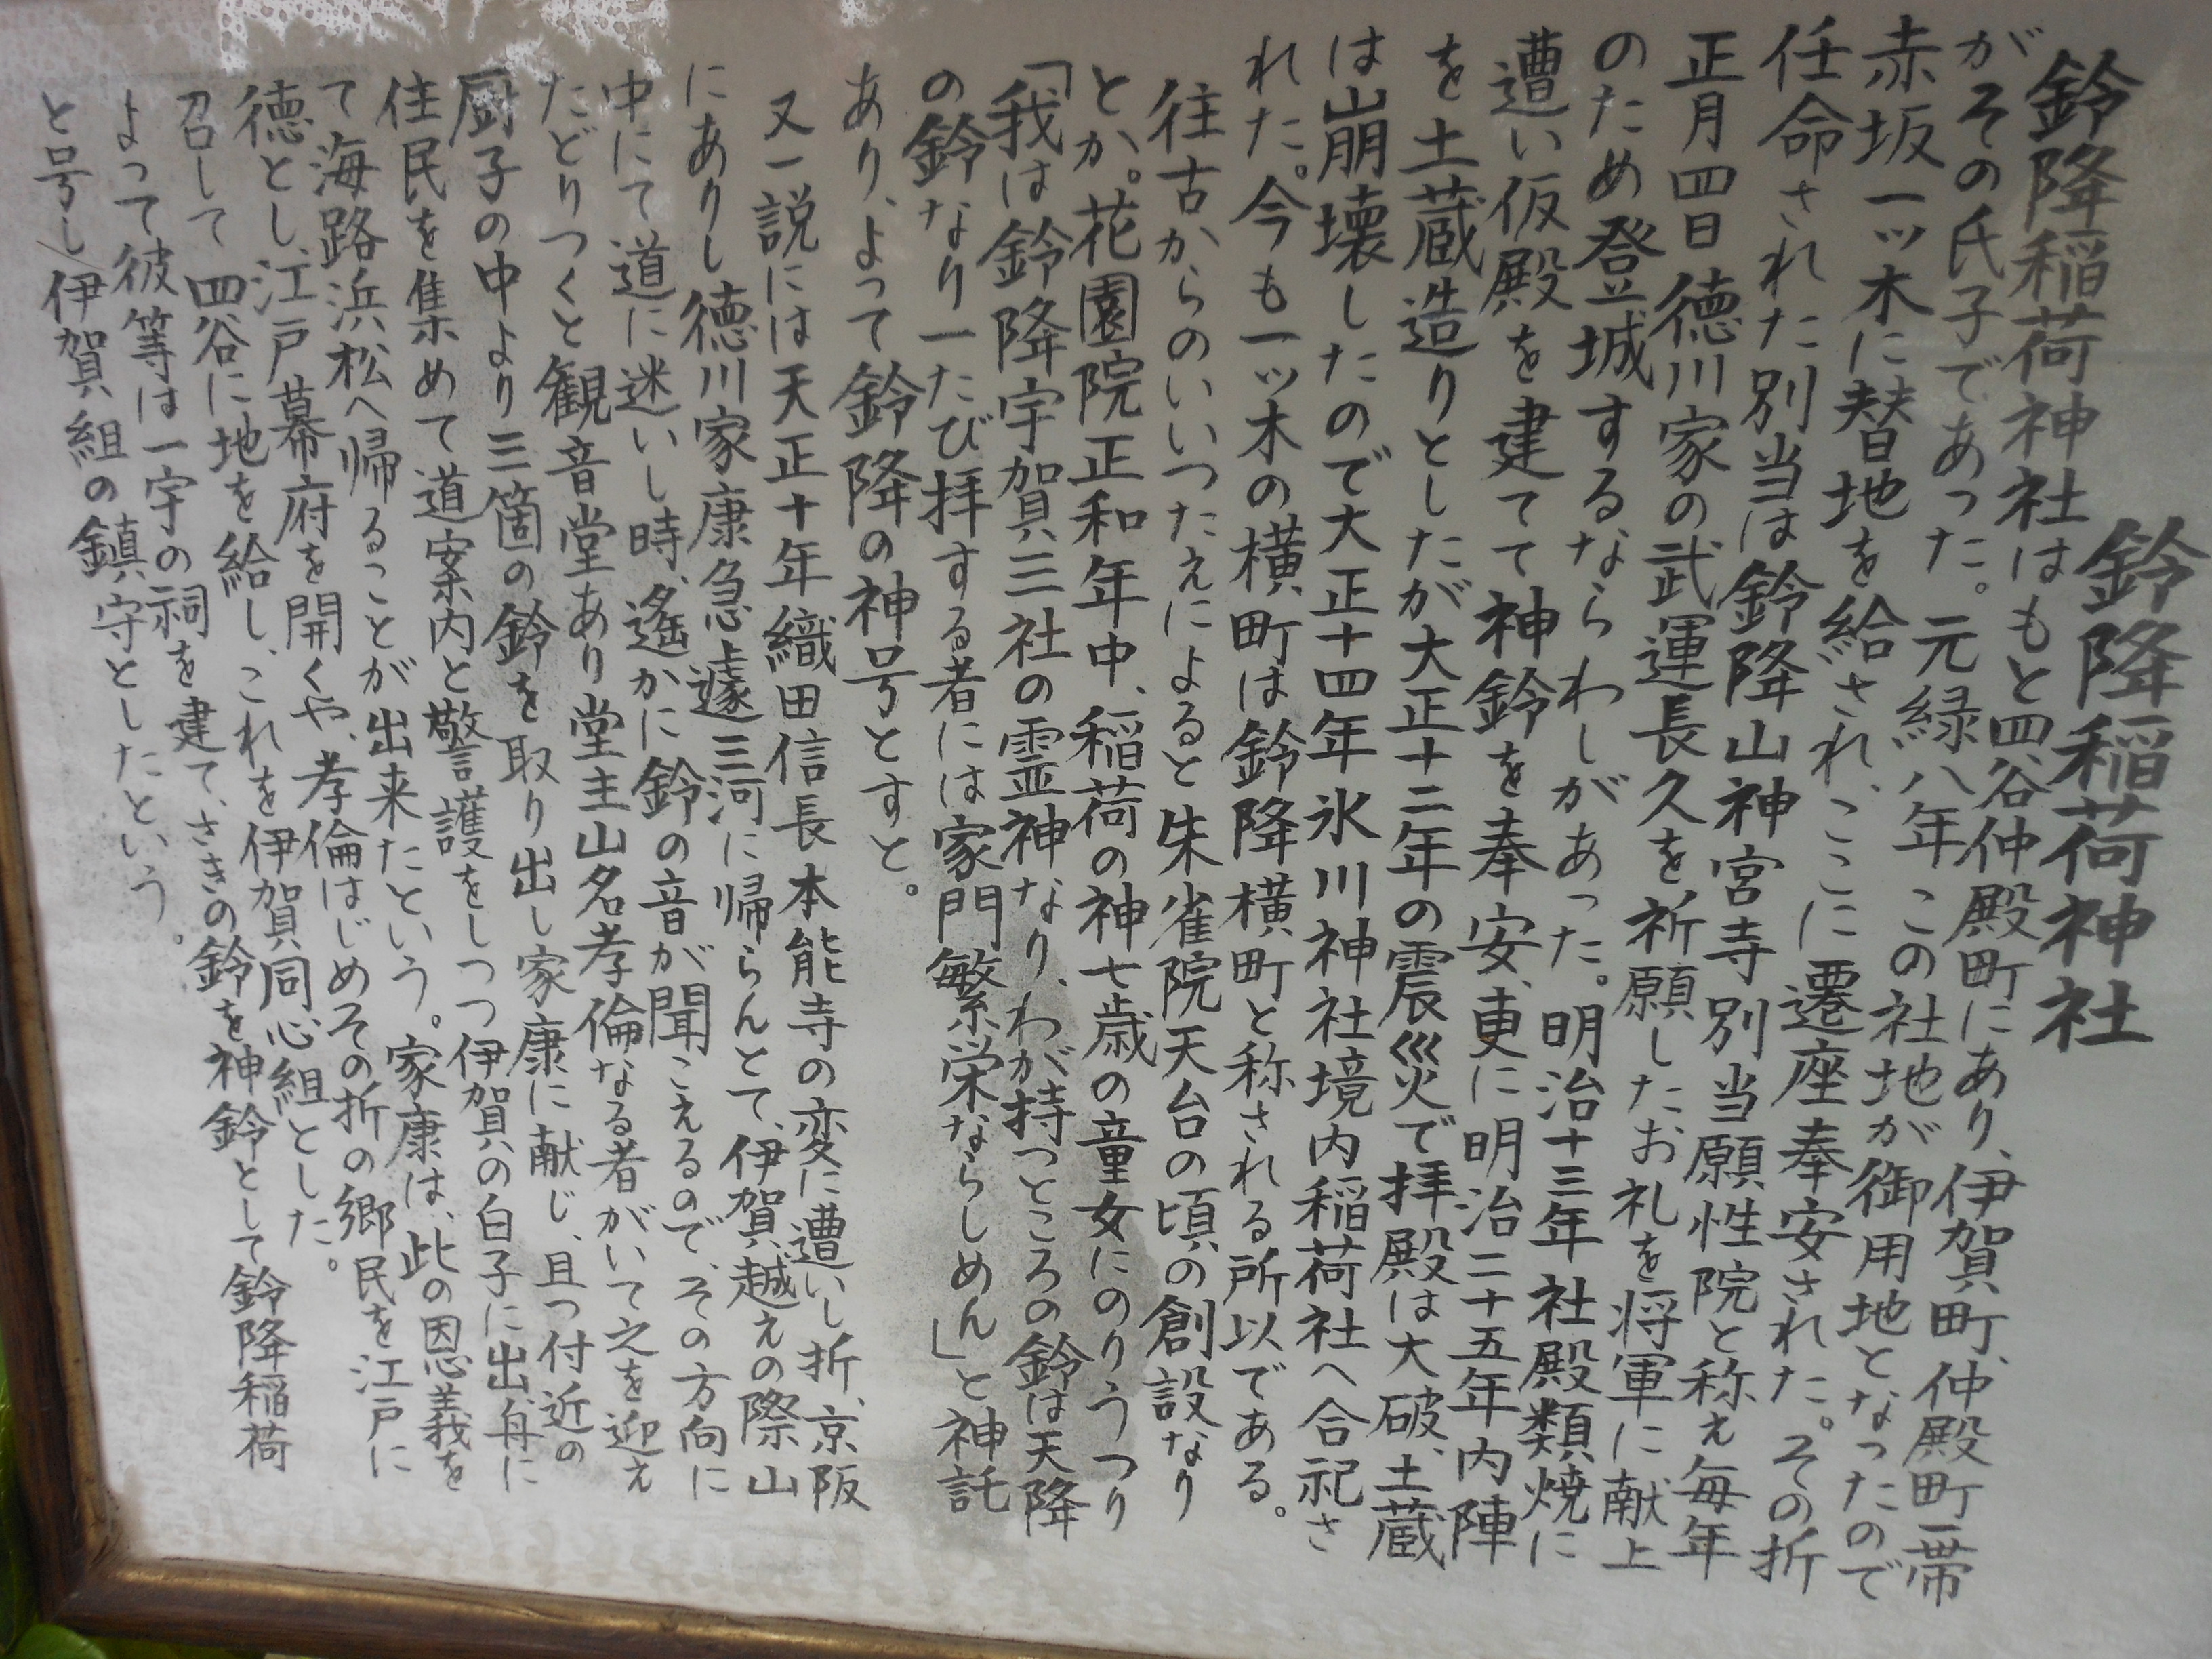 鈴降稲荷神社
鈴降稲荷神社はもと四谷仲殿町にあり、伊賀町、仲殿町一帯
がその氏子であった。元緑八年この社地が御用地となったので
赤坂一ッ木に替地を給され、ここに遷座奉安された。その折
任命された別当は鈴降山神宮寺別当願性院と称え毎年
正月四日徳川家の武運長久を祈願したお礼を将軍に献上
のため登城するならわしがあった。明治十三年社殿類焼に
遭い仮殿を建てて神鈴を奉安、更に明治二十五年内陣
を土蔵造りとしたが大正十二年の震災で拝殿は大破、土蔵
は崩壊したので大正十四年氷川神社境内稲荷社へ合祀さ
れた。今も一ッ木の横町は鈴降横町と称される所以である。
往古からのいいつたえによると朱雀院天台の頃の創設なり
とか。花園院正和年中、稲荷の神七歳の童女にのりうつり
「我は鈴降宇賀三社の霊神なり、わが持つところの鈴は天降
の鈴なり一たび拝する者には家門繁栄ならしめん」と神託
あり、よって鈴降の神号とすと。
又一説には天正十年織田信長本能寺の変に遭いし折、京阪
にありし徳川家康急遽三河に帰らんとて、伊賀越えの際山
中にて道に迷いし時、遙かに鈴の音が聞こえるので、その方向に
たどりつくと観音堂あり堂主山名孝倫なる者がいて之を迎え
厨子の中より三箇の鈴を取り出し家康に献じ、且つ付近の
住民を集めて道案内と警護をしつつ伊賀の白子に出、舟に
て海路浜松へ帰ることが出来たという。家康は、此の恩義を
徳とし、江戸幕府を開くや、孝倫はじめその折の郷民を江戸に
召して四谷に地を給し、これを伊賀同心組とした。
よって彼等は一宇の祠を建て、さきの鈴を神鈴として鈴降稲荷
と号し伊賀組の鎮守としたという。